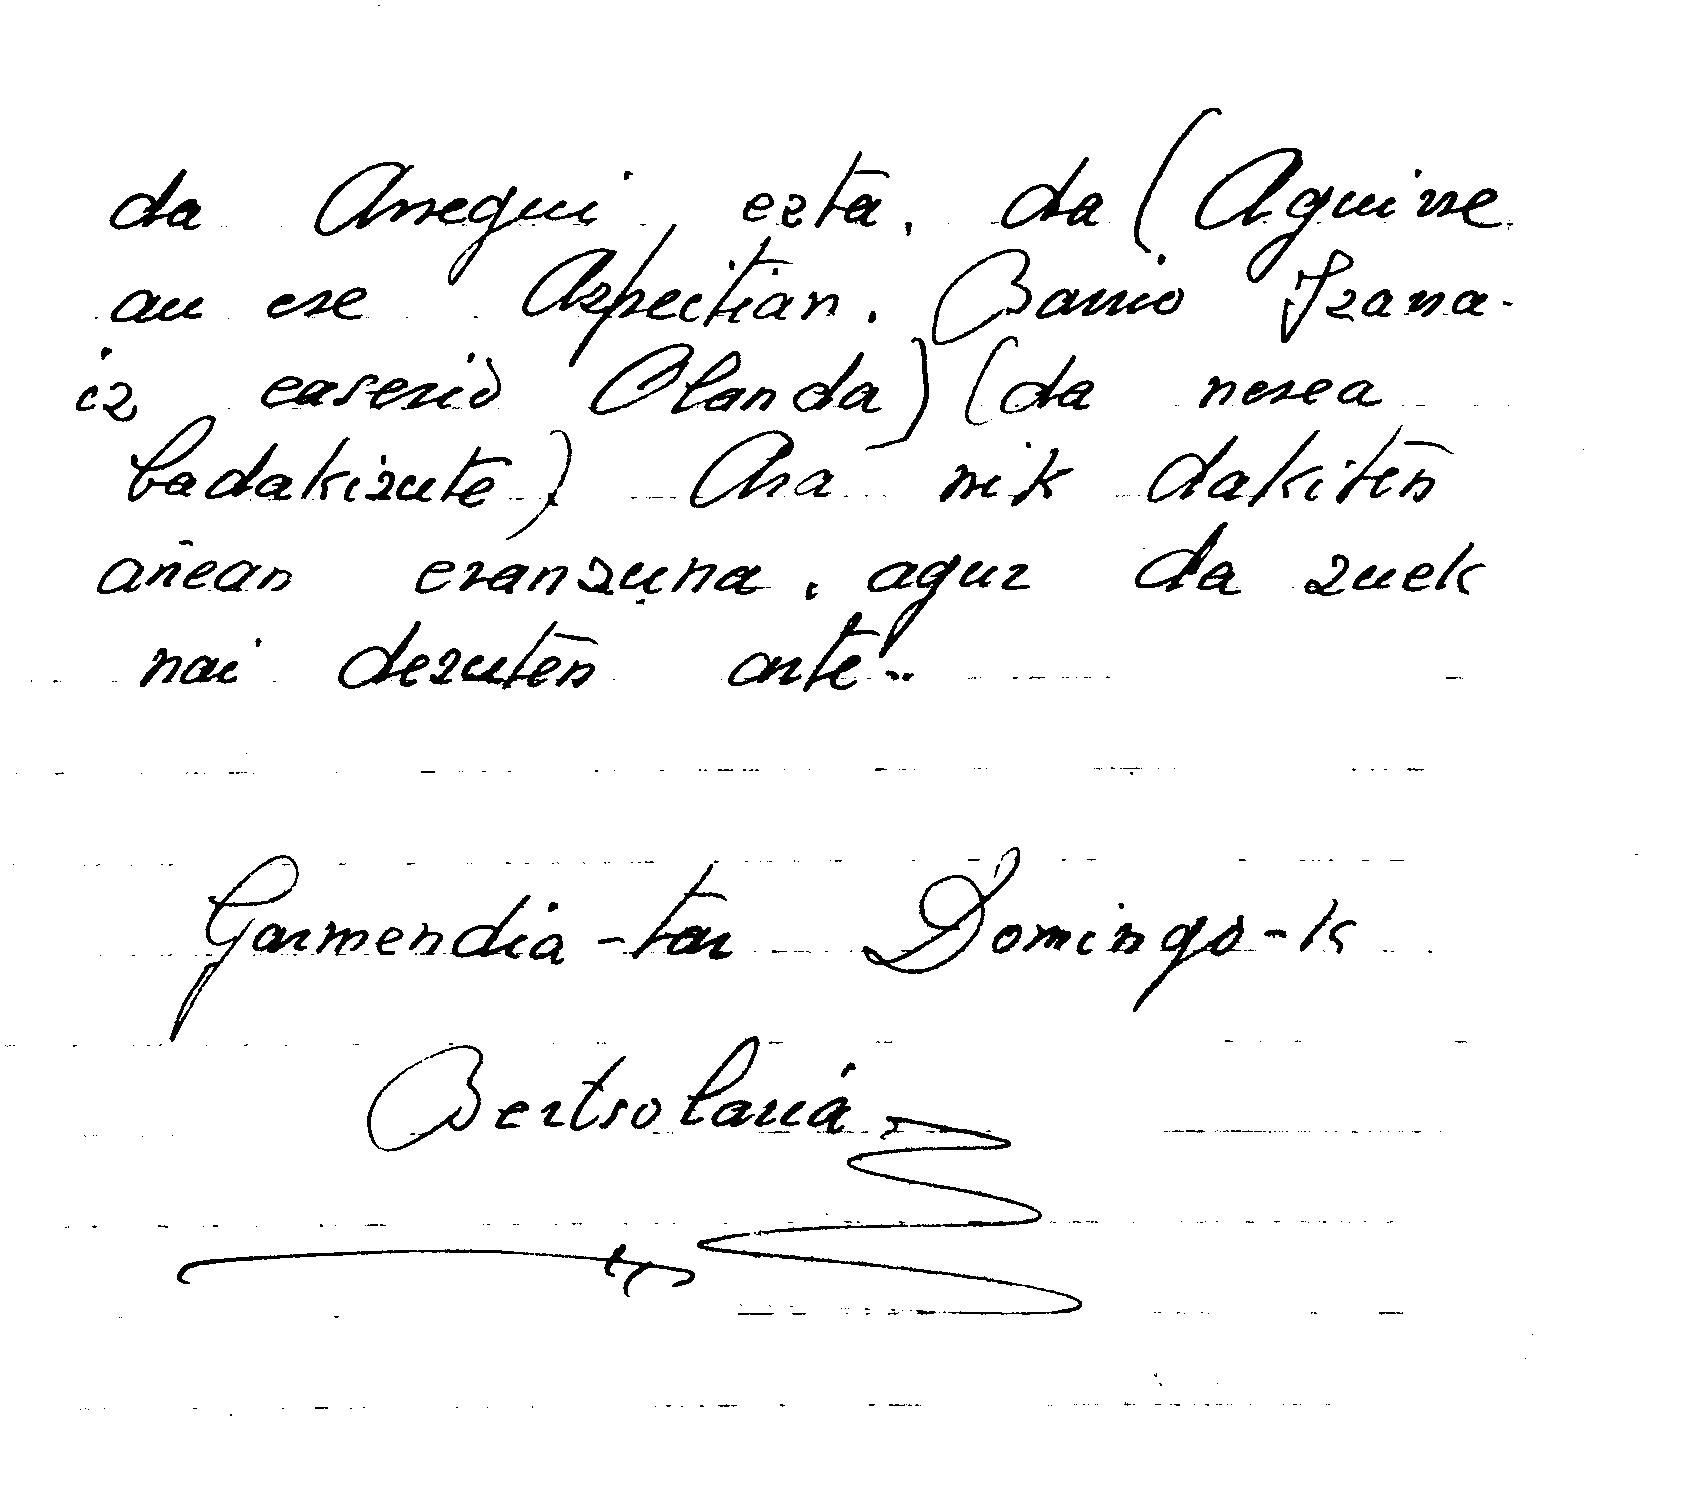 da Arregui, ezta. da (Aguirre
au ere Azpeitian. Barrio Izarra-
iz caserio Olanda) (da nerea
badakizute) Ara nik dakiten
añean eranzuna. agur da zuek
nai dezuten arte..
Garmendia-tar Domingo-k
Bertsolaria